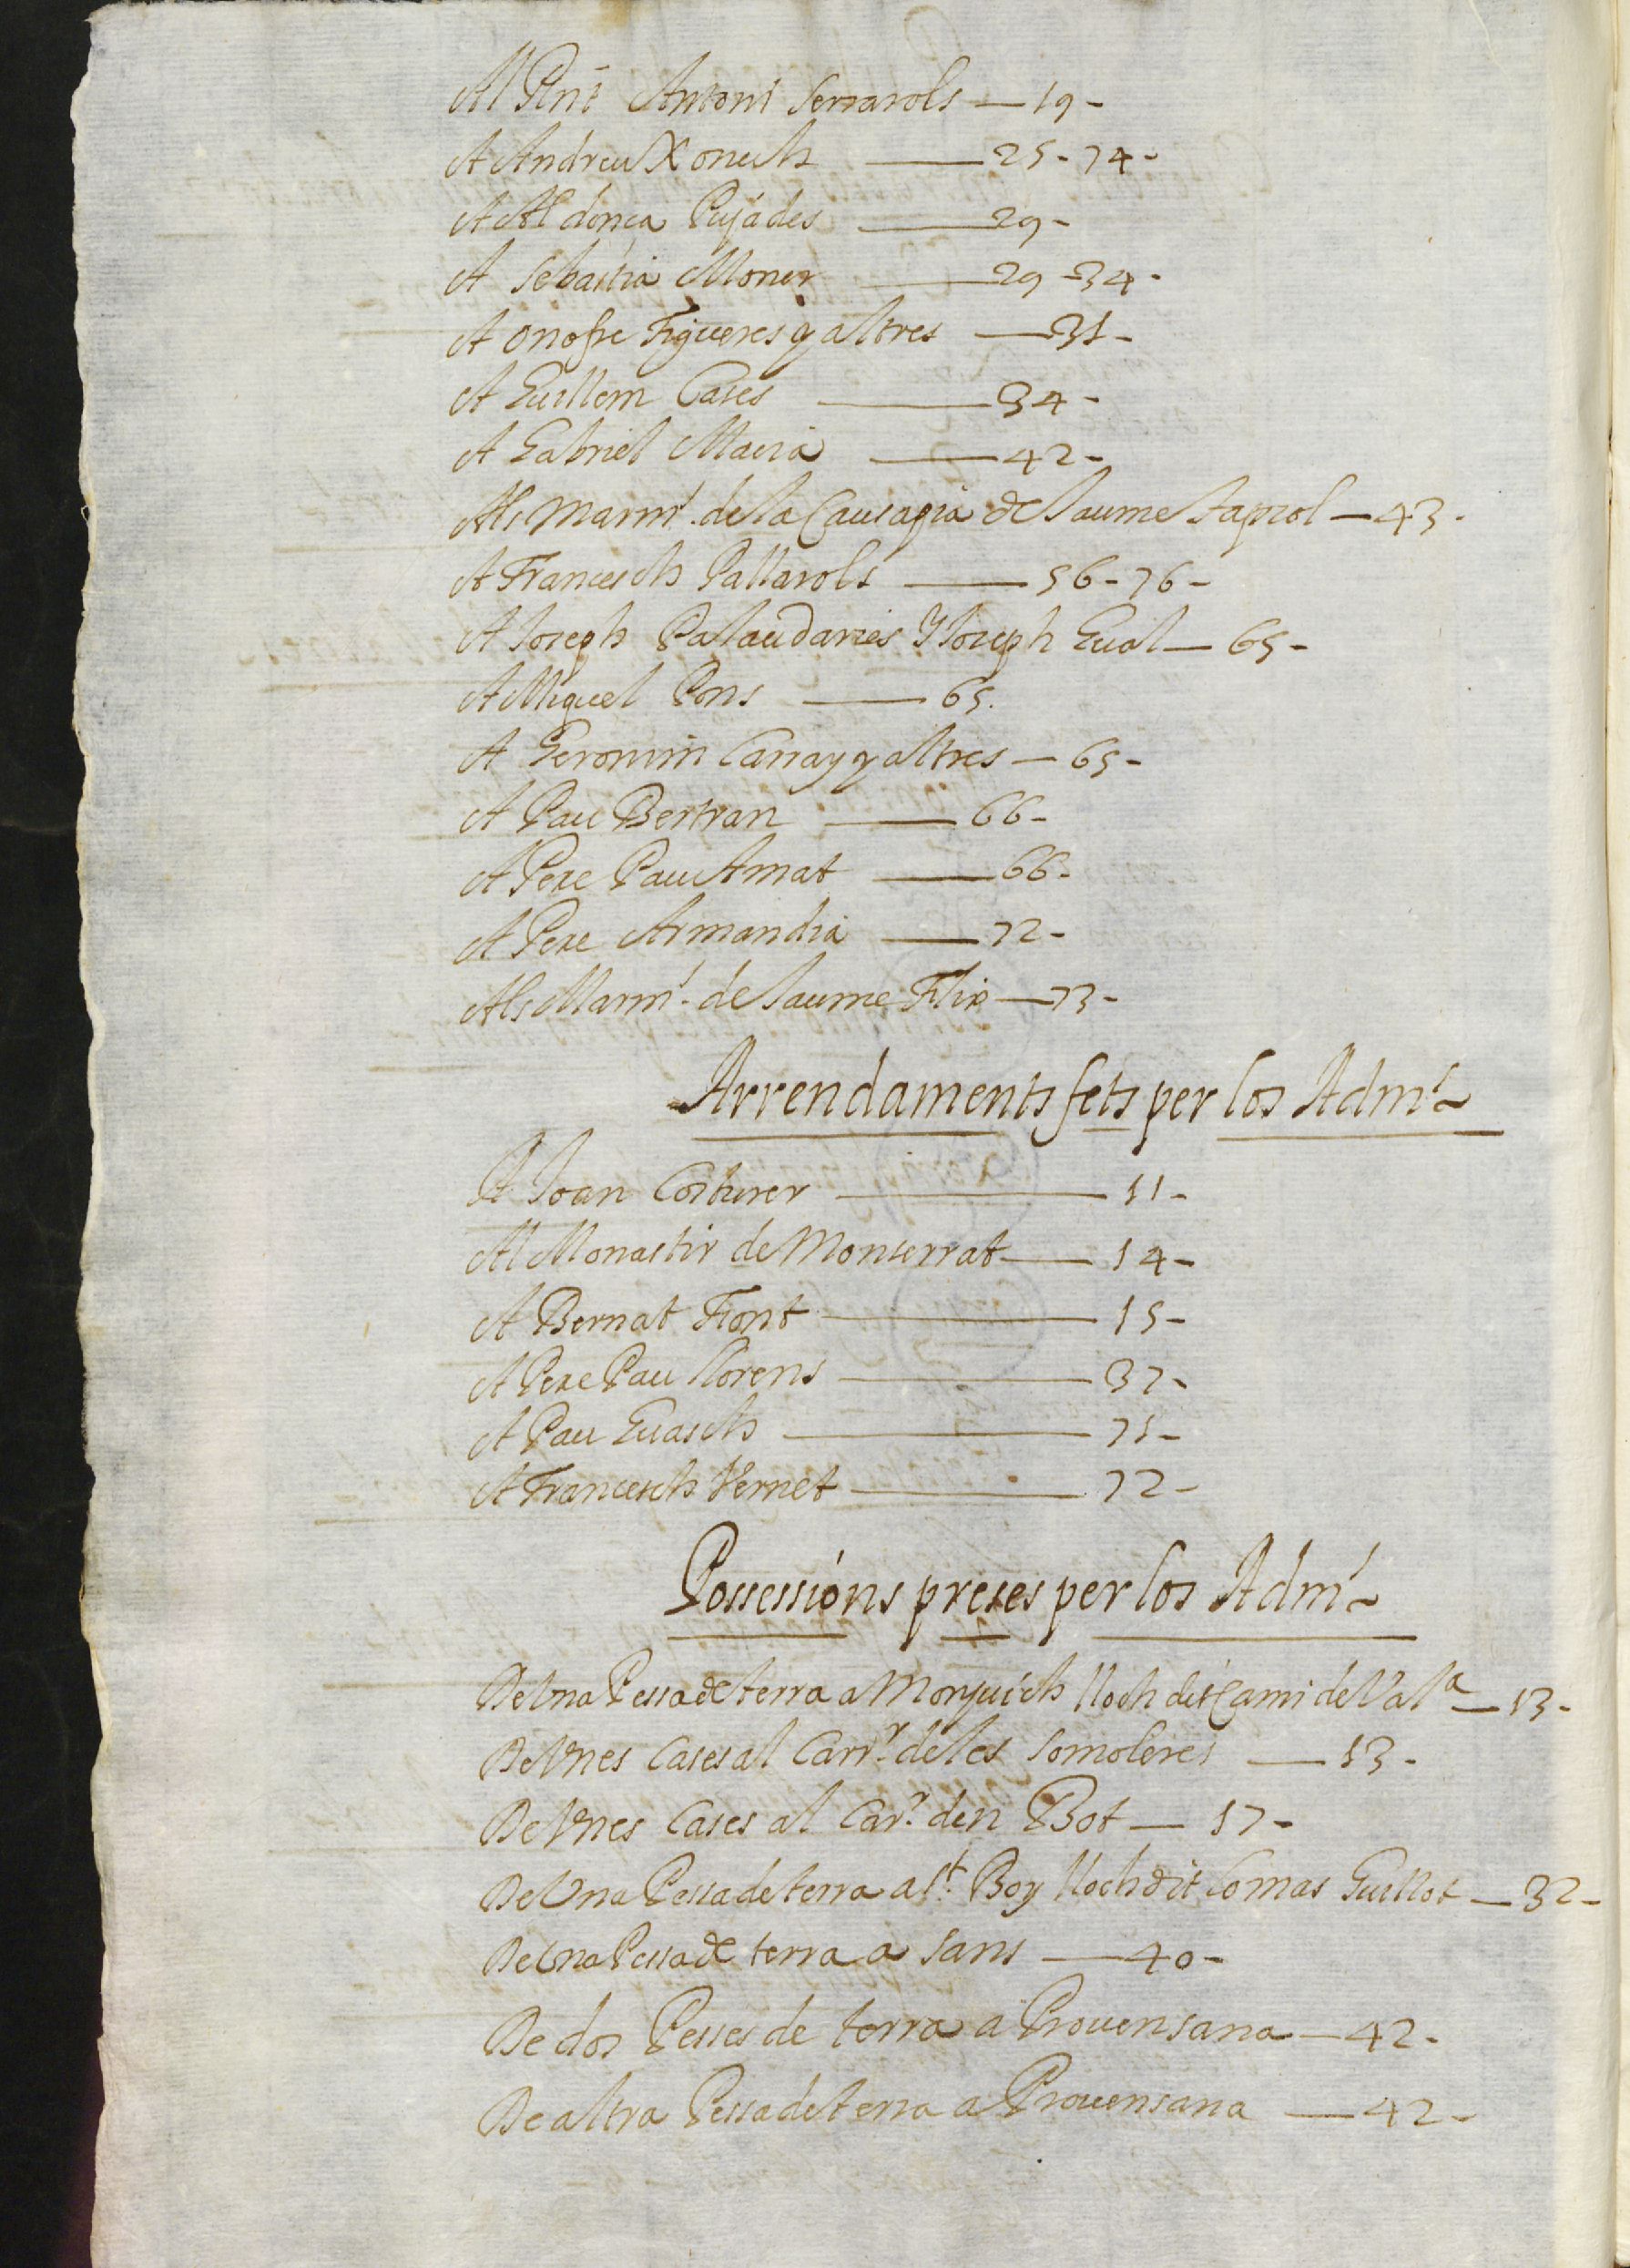 Al Pnt Antoni Serrarols — 19 -
A Andreu Xonech — 25 - 74 -
A Aldonça Pujades — 29 -
A Sebastia Moner — 29 - 34 -
A Onofre Figueres y altres — 31 -
A Guillem Cases — 34 -
A Gabriel Macia — 42 -
Als Marms. de la Causa pia de Jaume Sapiol — 43 -
A Francesch Pallarols — 56 - 76 -
A Joseph Palaudaries y Joseph Gual — 65 -
A Miquel Pons — 65.
A Geronim Carray y altres — 65 -
A Pau Bertran — 66 -
A Pere Pau Amat — 66 -
A Pere Armandia — 72 -
Als Marms. de Jaume Flix — 73 -
Arrendaments fets per los Adms
A Joan Costurer — 11 -
Al Monastir de Monserrat — 14 -
A Bernat Font — 15 -
A Pere Pau Llorens — 37 -
A Pau Guasch — 71 -
A Francesch Vernet — 72 -
Possessions preses per los Adms
De Una Pessa de terra a Monjuich lloch dit Cami de Vala — 13 -
De Unes Cases al Carr. de les Somoleres — 13 -
De Unes Cases al Carr. den Bot — 17 -
De Una Pessa de terra a St. Boy lloch dit Comas Guillot — 32 -
De Una Pessa de terra a Sans — 40 -
De dos Pesses de terra a Prouensana — 42 -
De altra Pessa de terra a Prouensana — 42 -